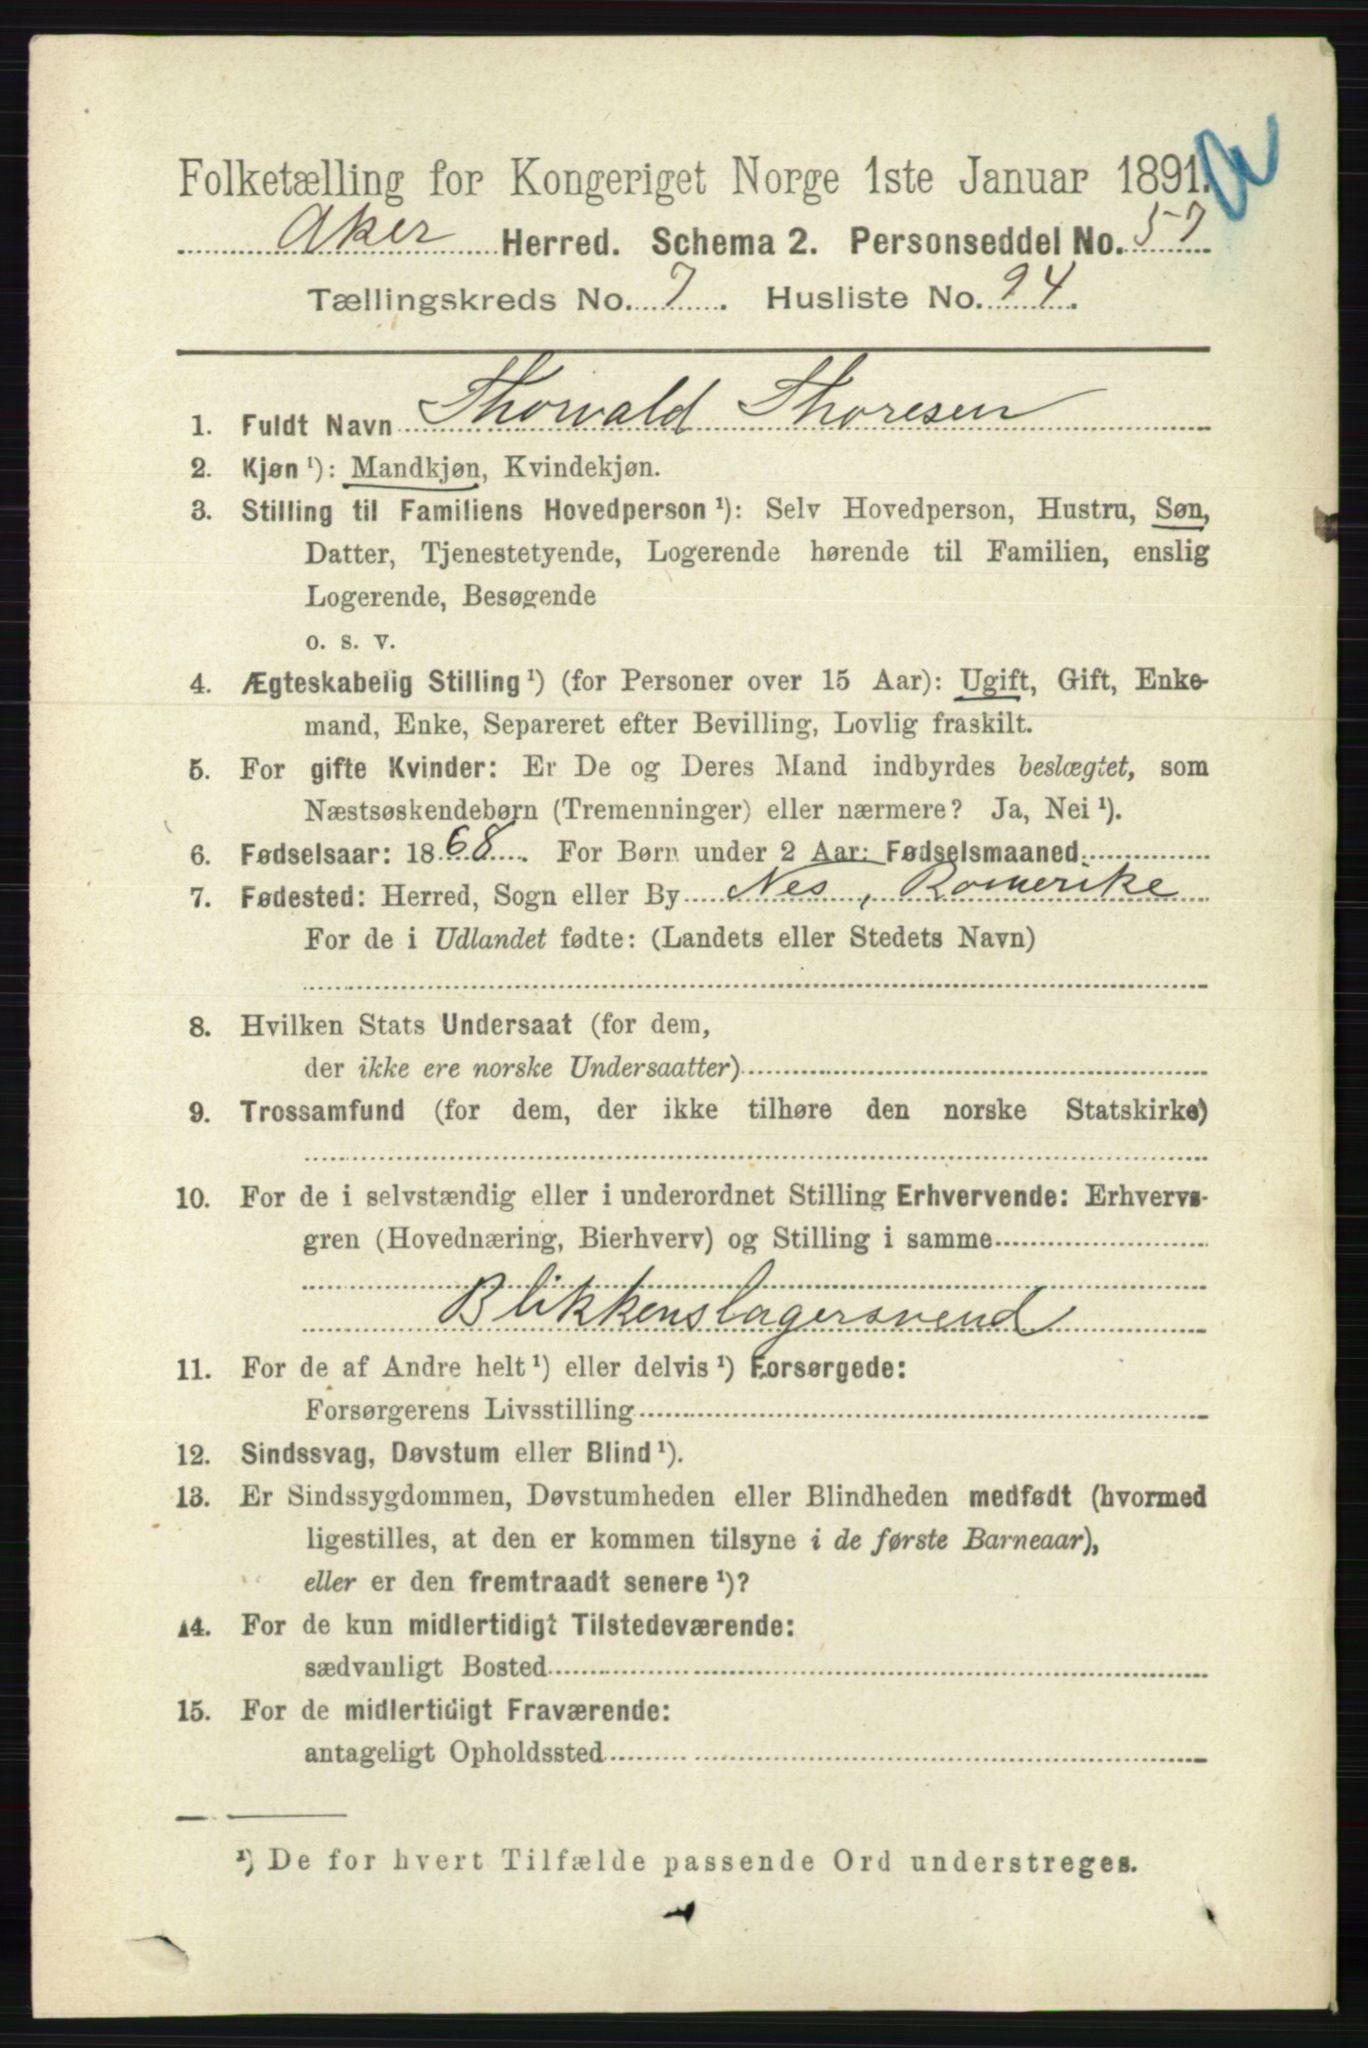 Folketælling for Kongeriget Norge 1ste Januar 1891.
Aker Herred. Schema 2. Personseddel No. 57
Tællingskreds No. 7. Husliste No. 94.
1. Fuldt Navn Thorvald Thoresen
2. Kjøn ¹): Mandkjøn, Kvindekjøn.
3. Stilling til Familiens Hovedperson ¹): Selv Hovedperson, Hustru, Søn,
Datter, Tjenestetyende, Logerende hørende til Familien, enslig
Logerende, Besøgende
o. s. v.
4. Ægteskabelig Stilling ¹) (for Personer over 15 Aar): Ugift, Gift, Enke-
mand, Enke, Separeret efter Bevilling, Lovlig fraskilt.
5. For gifte Kvinder: Er De og Deres Mand indbyrdes beslægtet, som
Næstsøskendebørn (Tremenninger) eller nærmere? Ja, Nei ¹).
6. Fødselsaar: 1868. For Børn under 2 Aar: Fødselsmaaned
7. Fødested: Herred, Sogn eller By Nes, Romerike
For de i Udlandet fødte: (Landets eller Stedets Navn)
8. Hvilken Stats Undersaat (for dem,
der ikke ere norske Undersaatter)
9. Trossamfund (for dem, der ikke tilhøre den norske Statskirke)
10. For de i selvstændig eller i underordnet Stilling Erhvervende: Erhvervs-
gren (Hovednæring, Bierhverv) og Stilling i samme
Blikkenslagersvend
11. For de af Andre helt ¹) eller delvis ¹) Forsørgede:
Forsørgerens Livsstilling
12. Sindssvag, Døvstum eller Blind ¹).
13. Er Sindssygdommen, Døvstumheden eller Blindheden medfødt (hvormed
ligestilles, at den er kommen tilsyne i de første Barneaar),
eller er den fremtraadt senere ¹)?
14. For de kun midlertidigt Tilstedeværende:
sædvanligt Bosted
15. For de midlertidigt Fraværende:
antageligt Opholdssted
¹) De for hvert Tilfælde passende Ord understreges.